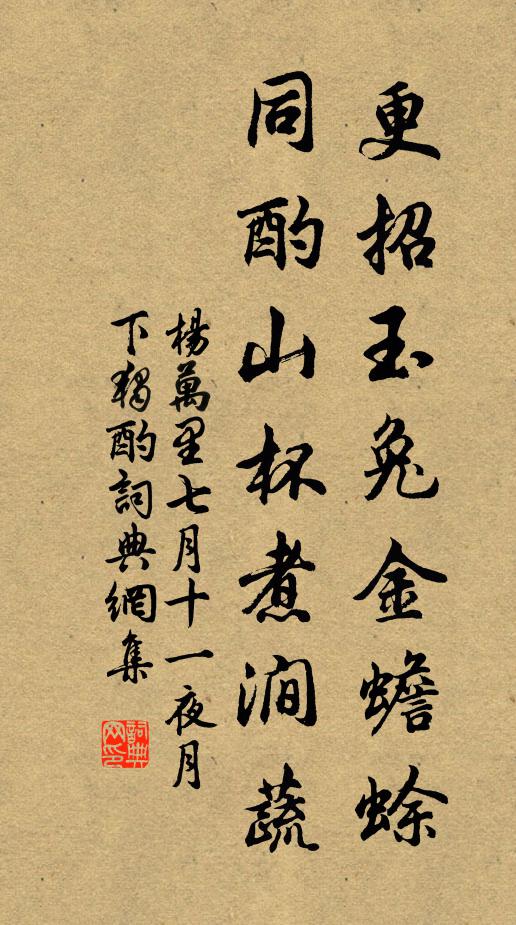 更招玉兔金蟾蜍
同酌山杯煮澗蔬
楊萬里七月十一夜月
下獨酌詞典網集
詞典
网印